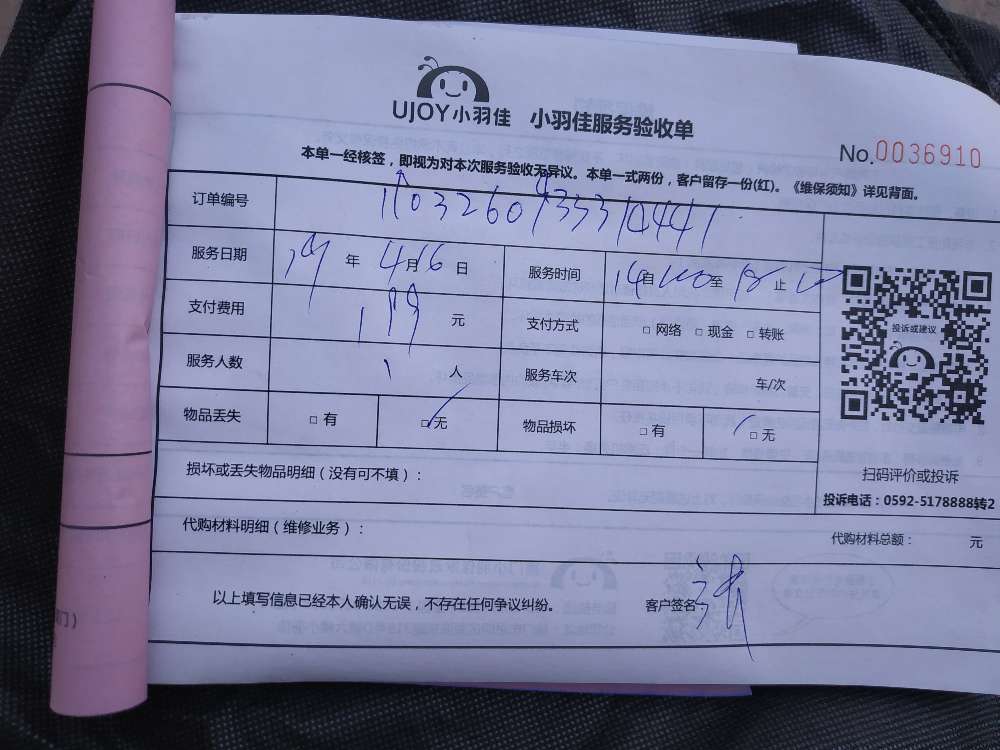 UJOY小羽佳 小羽佳服务验收单
No.0036910
本单一经核签，即视为对本次服务验收无异议。本单一式两份，客户留存一份(红)。《维保须知》详见背面。
订单编号
服务日期 年 4月16日 服务时间 14自 至 18 止
支付费用 元 支付方式 □ 网络 □ 现金 □ 转账
服务人数 1 人 服务车次 车/次
物品丢失 □ 有 □ 无 物品损坏 □ 有 □ 无
投诉或建议
扫码评价或投诉
投诉电话：0592-5178888转2
损坏或丢失物品明细（没有可不填）：
代购材料明细（维修业务）： 代购材料总额： 元
以上填写信息已经本人确认无误，不存在任何争议纠纷。 客户签名：